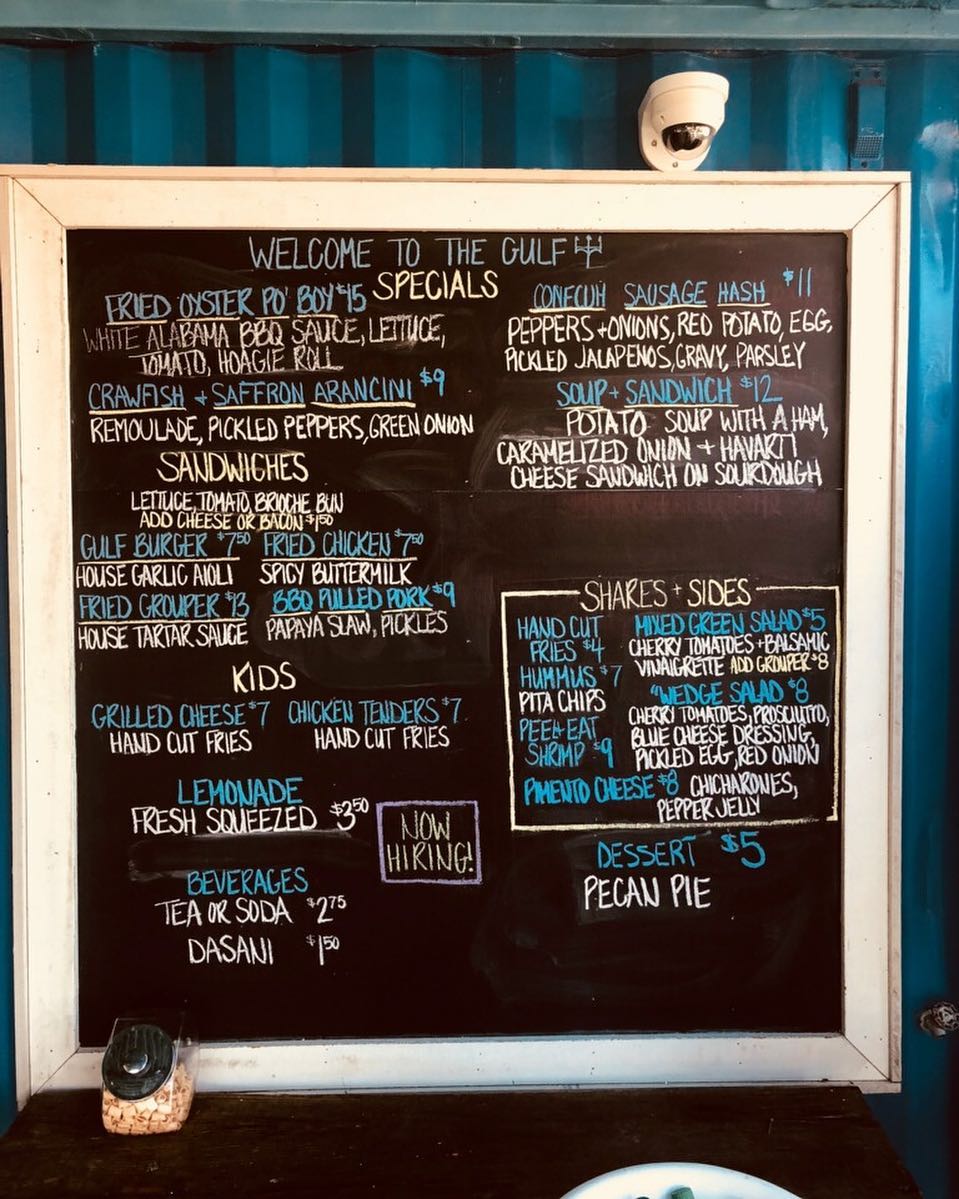 WELCOME TO THE GULF
SPECIALS
FRIED OYSTER PO' BOY $15
WHITE ALABAMA BBQ SAUCE, LETTUCE,
TOMATO, HOAGIE ROLL
CRAWFISH + SAFFRON ARANCINI $9
REMOULADE, PICKLED PEPPERS, GREEN ONION
CONECUH SAUSAGE HASH $11
PEPPERS + ONIONS, RED POTATO, EGG,
PICKLED JALAPENOS, GRAVY, PARSLEY
SOUP + SANDWICH $12
POTATO SOUP WITH A HAM,
CARAMELIZED ONION + HAVARTI
CHEESE SANDWICH ON SOURDOUGH
SANDWICHES
LETTUCE, TOMATO, BRIOCHE BUN
ADD CHEESE OR BACON $1.50
GULF BURGER $7.50
HOUSE GARLIC AIOLI
FRIED CHICKEN $7.50
SPICY BUTTERMILK
FRIED GROUPER $13
HOUSE TARTAR SAUCE
BBQ PULLED PORK $9
PAPAYA SLAW, PICKLES
KIDS
GRILLED CHEESE $7
HAND CUT FRIES
CHICKEN TENDERS $7
HAND CUT FRIES
LEMONADE
FRESH SQUEEZED $3.50
NOW
HIRING!
BEVERAGES
TEA OR SODA $2.75
DASANI $1.50
SHARES + SIDES
HAND CUT
FRIES $4
HUMMUS $7
PITA CHIPS
PEEL + EAT
SHRIMP $9
MIXED GREEN SALAD $5
CHERRY TOMATOES + BALSAMIC
VINAIGRETTE ADD GROUPER $8
"WEDGE SALAD $8
CHERRY TOMATOES, PROSCIUTTO,
BLUE CHEESE DRESSING,
PICKLED EGG, RED ONION
PIMENTO CHEESE $8 CHICHARONES,
PEPPER JELLY
DESSERT $5
PECAN PIE